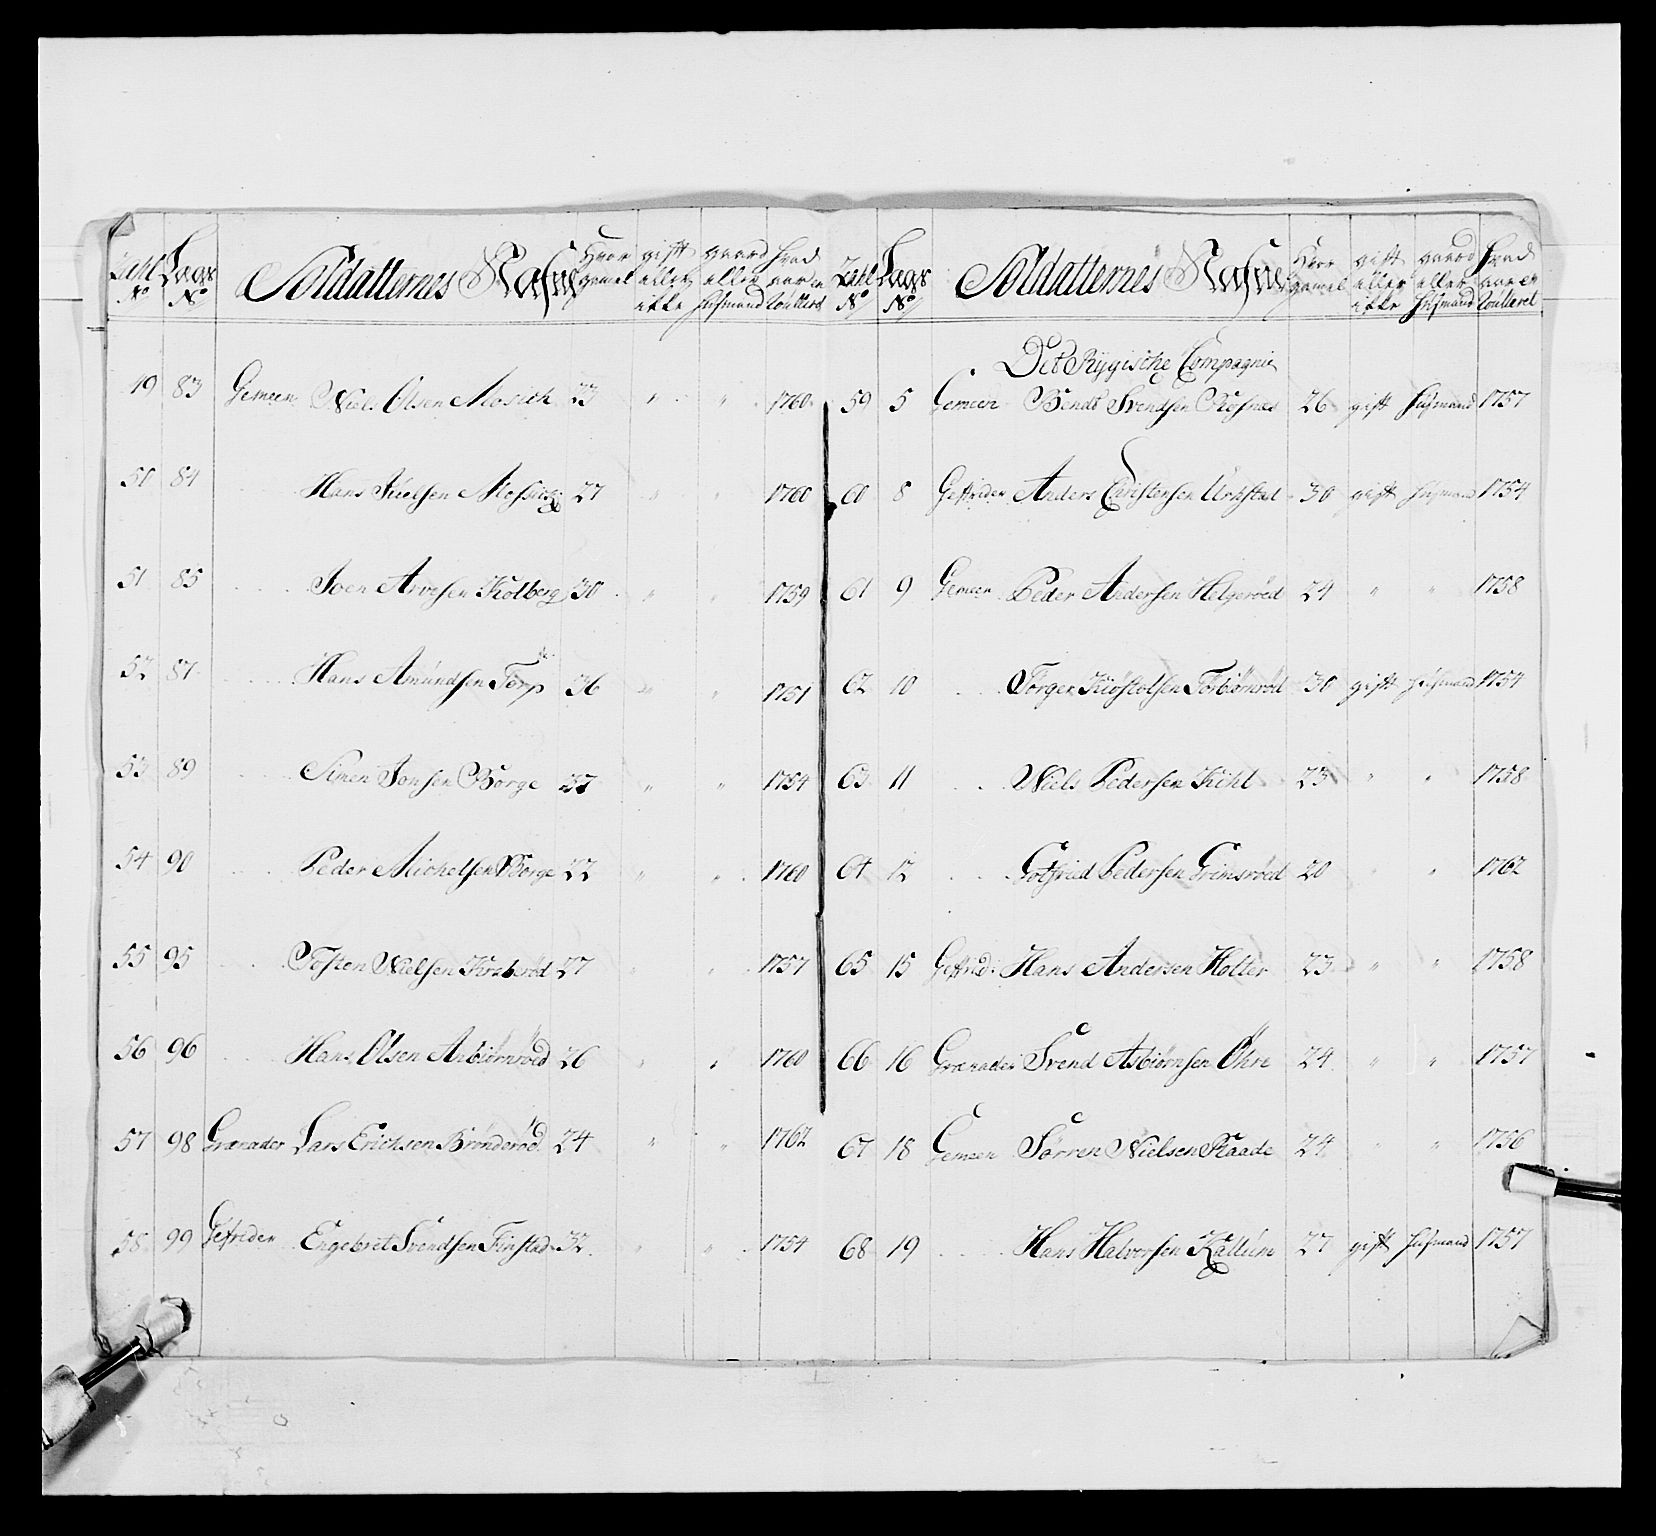 Zahl No | Lags No | Soldatternes Nafne | Hvor gamel | gift eller ikke | gaard eller Husmand | hvad aar en roulleret
19 | 83 | Gemeen Niels Olsen Mosich | 23 | " | " | 1760
50 | 84 | Hans Juelsen Mossig | 27 | " | " | 1760
51 | 85 | Joen Arvesen Kolberg | 30 | " | " | 1759
52 | 87 | Hans Amundsen Torp | 36 | " | " | 1751
53 | 89 | Simen Jonsen Borge | 37 | " | " | 1754
54 | 90 | Peder Michelsen Borge | 22 | " | " | 1760
55 | 95 | Tosten Nielsen Kraberød | 27 | " | " | 1757
56 | 96 | Hans Olsen Anbiørnrød | 26 | " | " | 1760
57 | 98 | Grænader Lars Erichsen Brønderød | 24 | " | " | 1762
58 | 99 | Gefreder Engebret Svendsen Finstad | 32 | " | " | 1754
Zahl No | Lags No | Soldatternes Nafne | Hvor gamel | gift eller ikke | gaard eller Husmand | hvad aar er roulleret
Det Rygische Compagnie
59 | 5 | Gemeen Bendt Svendsen Rosnæs | 26 | gift | Husmand | 1757
60 | 8 | Geffreder Anders Christensen Urkstad | 30 | gift | Husmand | 1754
61 | 9 | Gemeen Peder Andersen Helgerød | 24 | " | " | 1758
62 | 10 | Törger Kiøstolsen Torbiørnrød | 30 | gift | Husmand | 1754
63 | 11 | Niels Pedersen Kihl | 23 | " | " | 1758
64 | 12 | Gotfried Pedersen Grimsrød | 20 | " | " | 1762
65 | 15 | Geffred: Hans Andersen Holter | 23 | " | " | 1758
66 | 16 | Grænader Svend Asbiørnsen Öhre | 24 | " | " | 1757
67 | 18 | Gemeen Sørren Nielsen Raade | 24 | " | " | 1756
68 | 19 | Hans Halvorsen Kallum | 27 | gift | Husmand | 1757